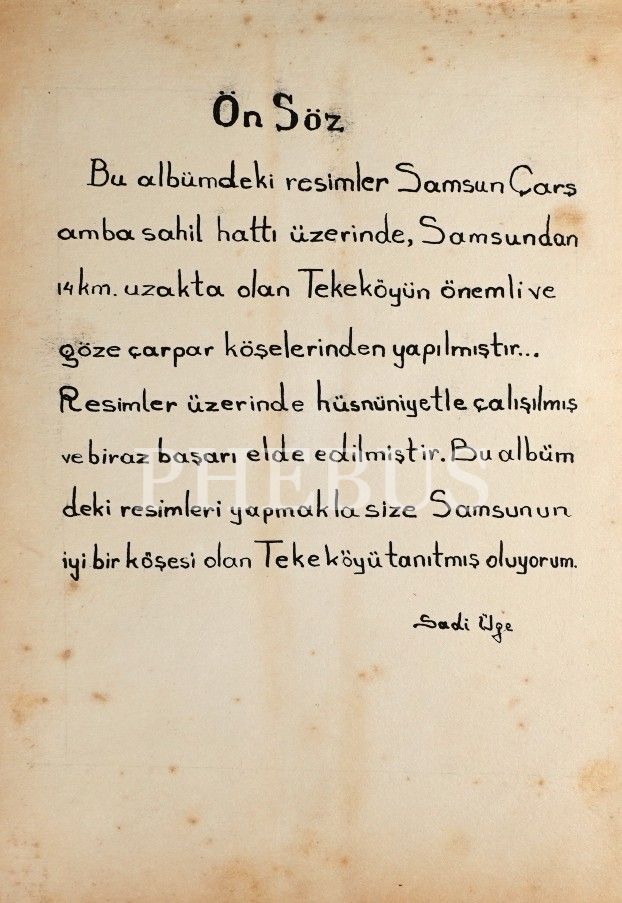 Ön Söz
Bu albümdeki resimler Samsun Çarş
amba sahil hattı üzerinde, Samsundan
14 km. uzakta olan Tekeköyün önemli ve
göze çarpar köşelerinden yapılmıştır...
Resimler üzerinde hüsnüniyetle çalışılmış
ve biraz başarı elde edilmiştir. Bu albüm
PHEBUS
deki resimleri yapmakla size Samsunun
iyi bir köşesi olan Tekeköyü tanıtmış oluyorum.
Sadi Ülge